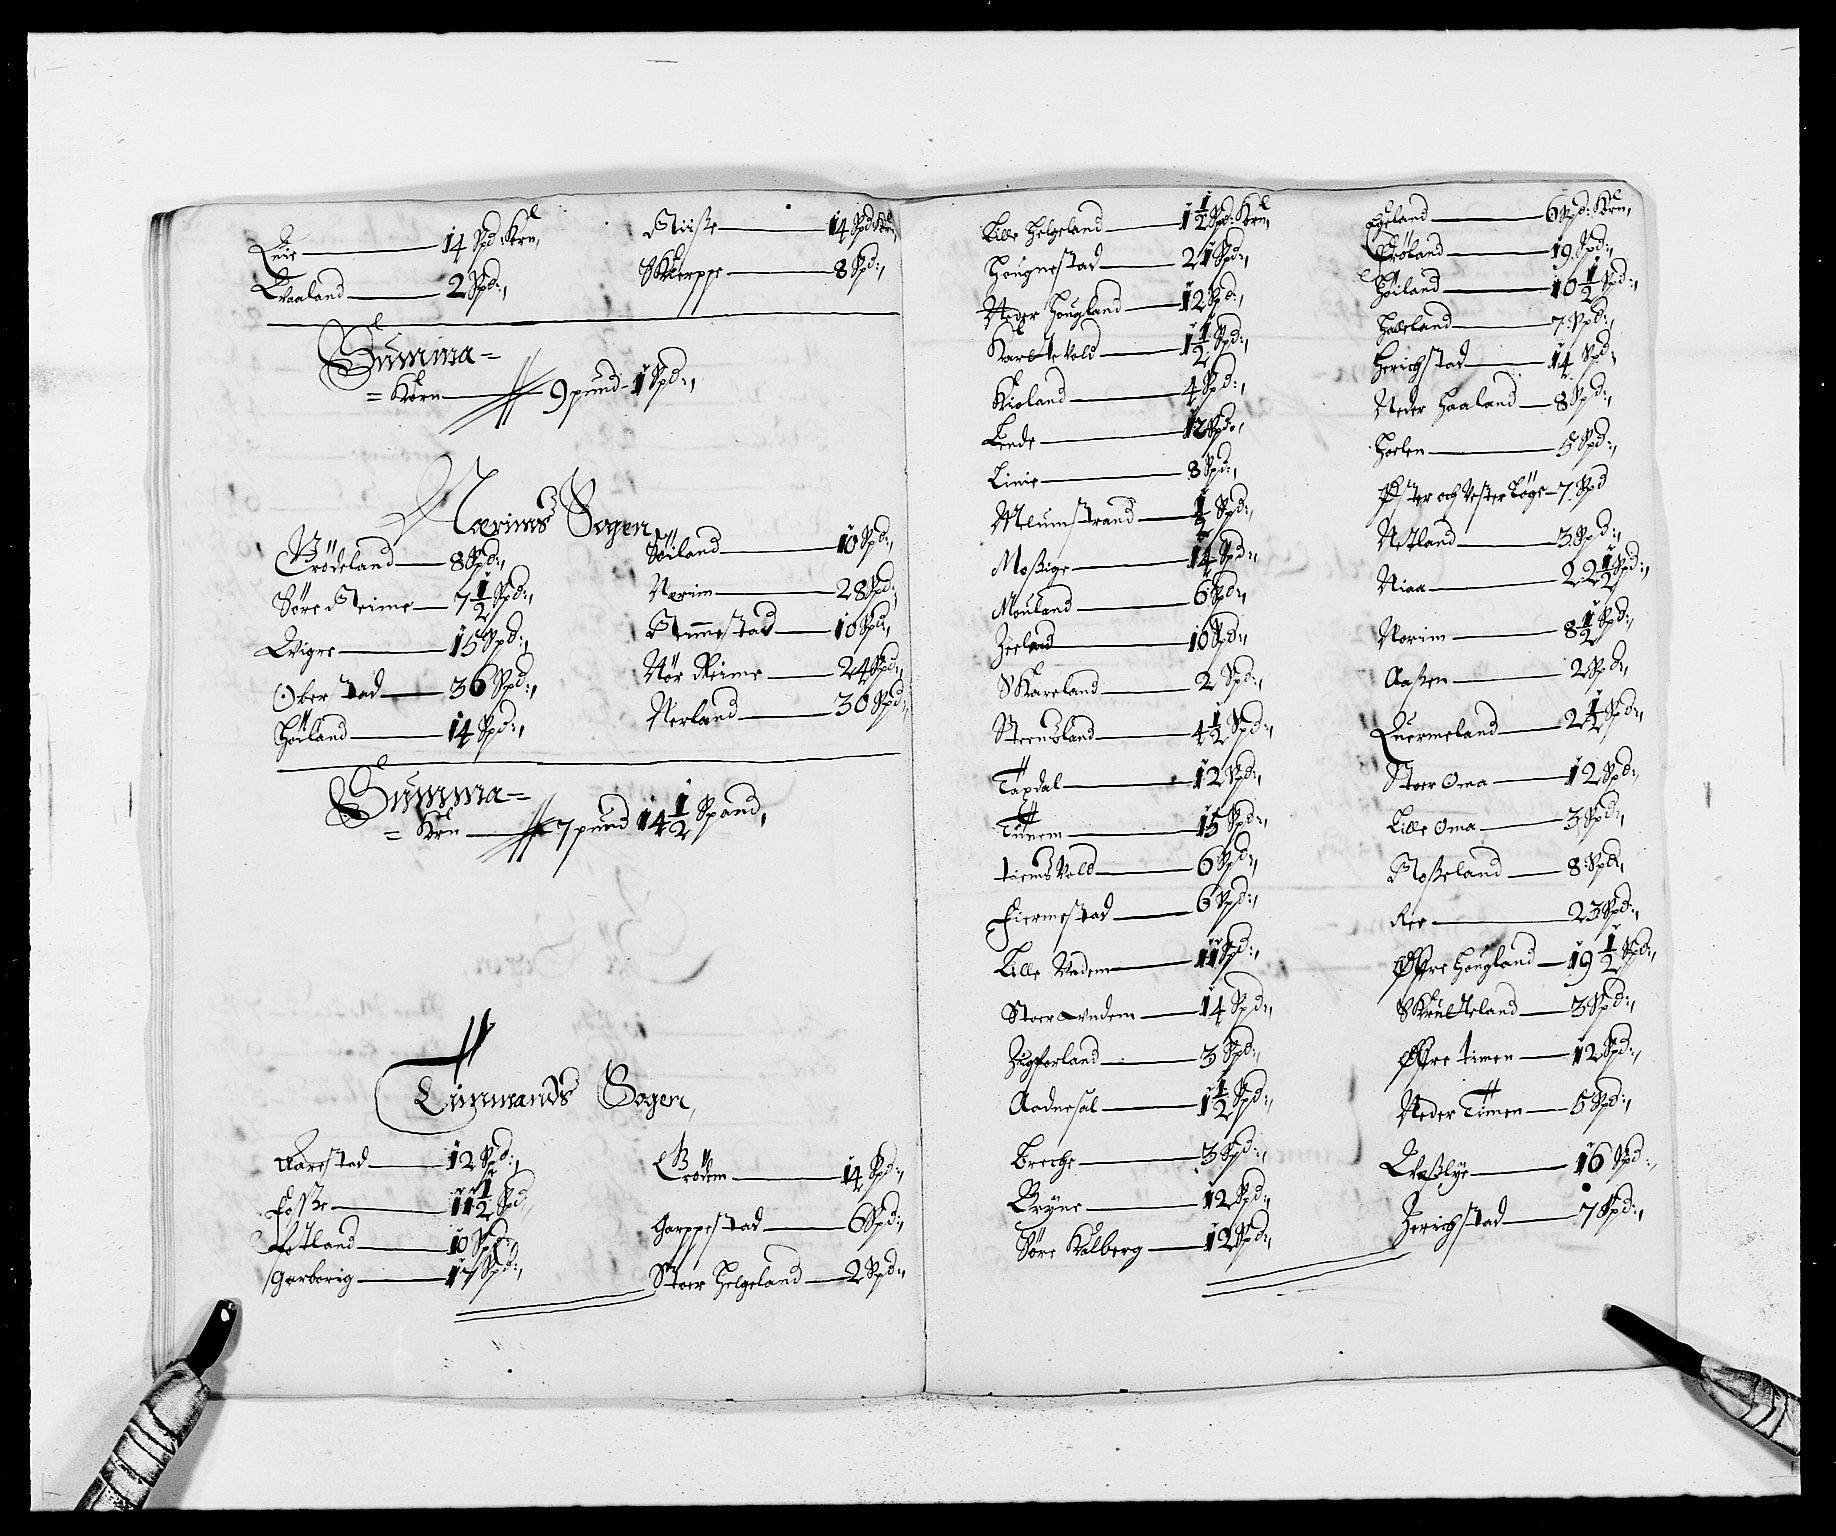 Luie 14 Spd: Krn,
Quaaland 2 Spd:,
Riisße 14 Spd Krn,
Skierppe 8 Spd:,
Summa =
= Korn 9 pund - 1 Spd:,
Nærims Sogen,
Brödeland 8 Spd:,
Söre Reime 7 1/2 Spd:,
Wigre 15 Spd:,
Oberstad 36 Spd:,
Höiland 14 Spd:,
Höiland 10 Spd:,
Nærim 28 Spd:,
Rimmestad 10 Spd:,
Nör Reime 24 Spd:,
Nerland 30 Spd:,
Summa =
= Krn 7 pund 14 1/2 Spand,
Timmands Sogen,
Aarestad 12 Spd:,
Fosße 11 1/2 Spd:,
Netland 10 Spd:,
Garborig 17 Spd:,
Grödem 14 Spd:,
Garppestad 6 Spd:,
Stoer Helgeland 2 Spd:,
Lille Helgeland 1 1/2 Spd: Krn,
Hougnestad 21 Spd:,
Neder Hougland 12 Spd:,
Karlsvold 1 1/2 Spd:,
Kioland 4 Spd:,
Lende 12 Spd:,
Linie 8 Spd:,
Melumstrand 1/2 Spd:,
Moßige 14 Spd:,
Mouland 6 Spd:,
Seeland 10 Spd:,
Skareland 2 Spd:,
Steensland 4 1/2 Spd:,
Taxdal 12 Spd:,
Tunem 15 Spd:,
Tiemsvold 6 Spd:,
Fiermestad 6 Spd:,
Lille Undem 11 Spd:,
Stoer Undem 14 Spd:,
Zigforland 3 Spd:,
Aadnesal 1 1/2 Spd:,
Breche 3 Spd:,
Bryne 12 Spd:,
Söre Kalberg 12 Spd:,
Egeland 6 Spd: Krn,
Fröland 19 Spd:,
Höiland 10 1/2 Spd:,
Haaland 7 Spd:,
Herichstad 14 Spd:
Neder Haaland 8 Spd:,
Hoelen 5 Spd:,
Øster och Vester Löge 7 Spd
Netland 3 Spd:,
Niaa 22 1/2 Spd:,
Norim 8 1/2 Spd:,
Aaßen 2 Spd:,
Quermeland 2 1/2 Spd:,
Stoer Oma 12 Spd:,
Lille Oma 3 Spd:,
Roßeland 8 Spd:,
Ree 23 Spd:,
Øffre Hougland 19 1/2 Spd:,
Skrutteland 3 Spd:,
Øffre Timen 12 Spd:,
Neder Timen 5 Spd:,
Wasßlye 16 Spd:,
Zerichstad 7 Spd:,